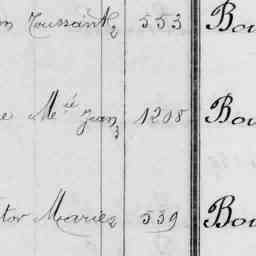 on Toussaint 2 553 Bou
e Mie Jean 3 1208 Bou
tor Marie 2 539 Bou